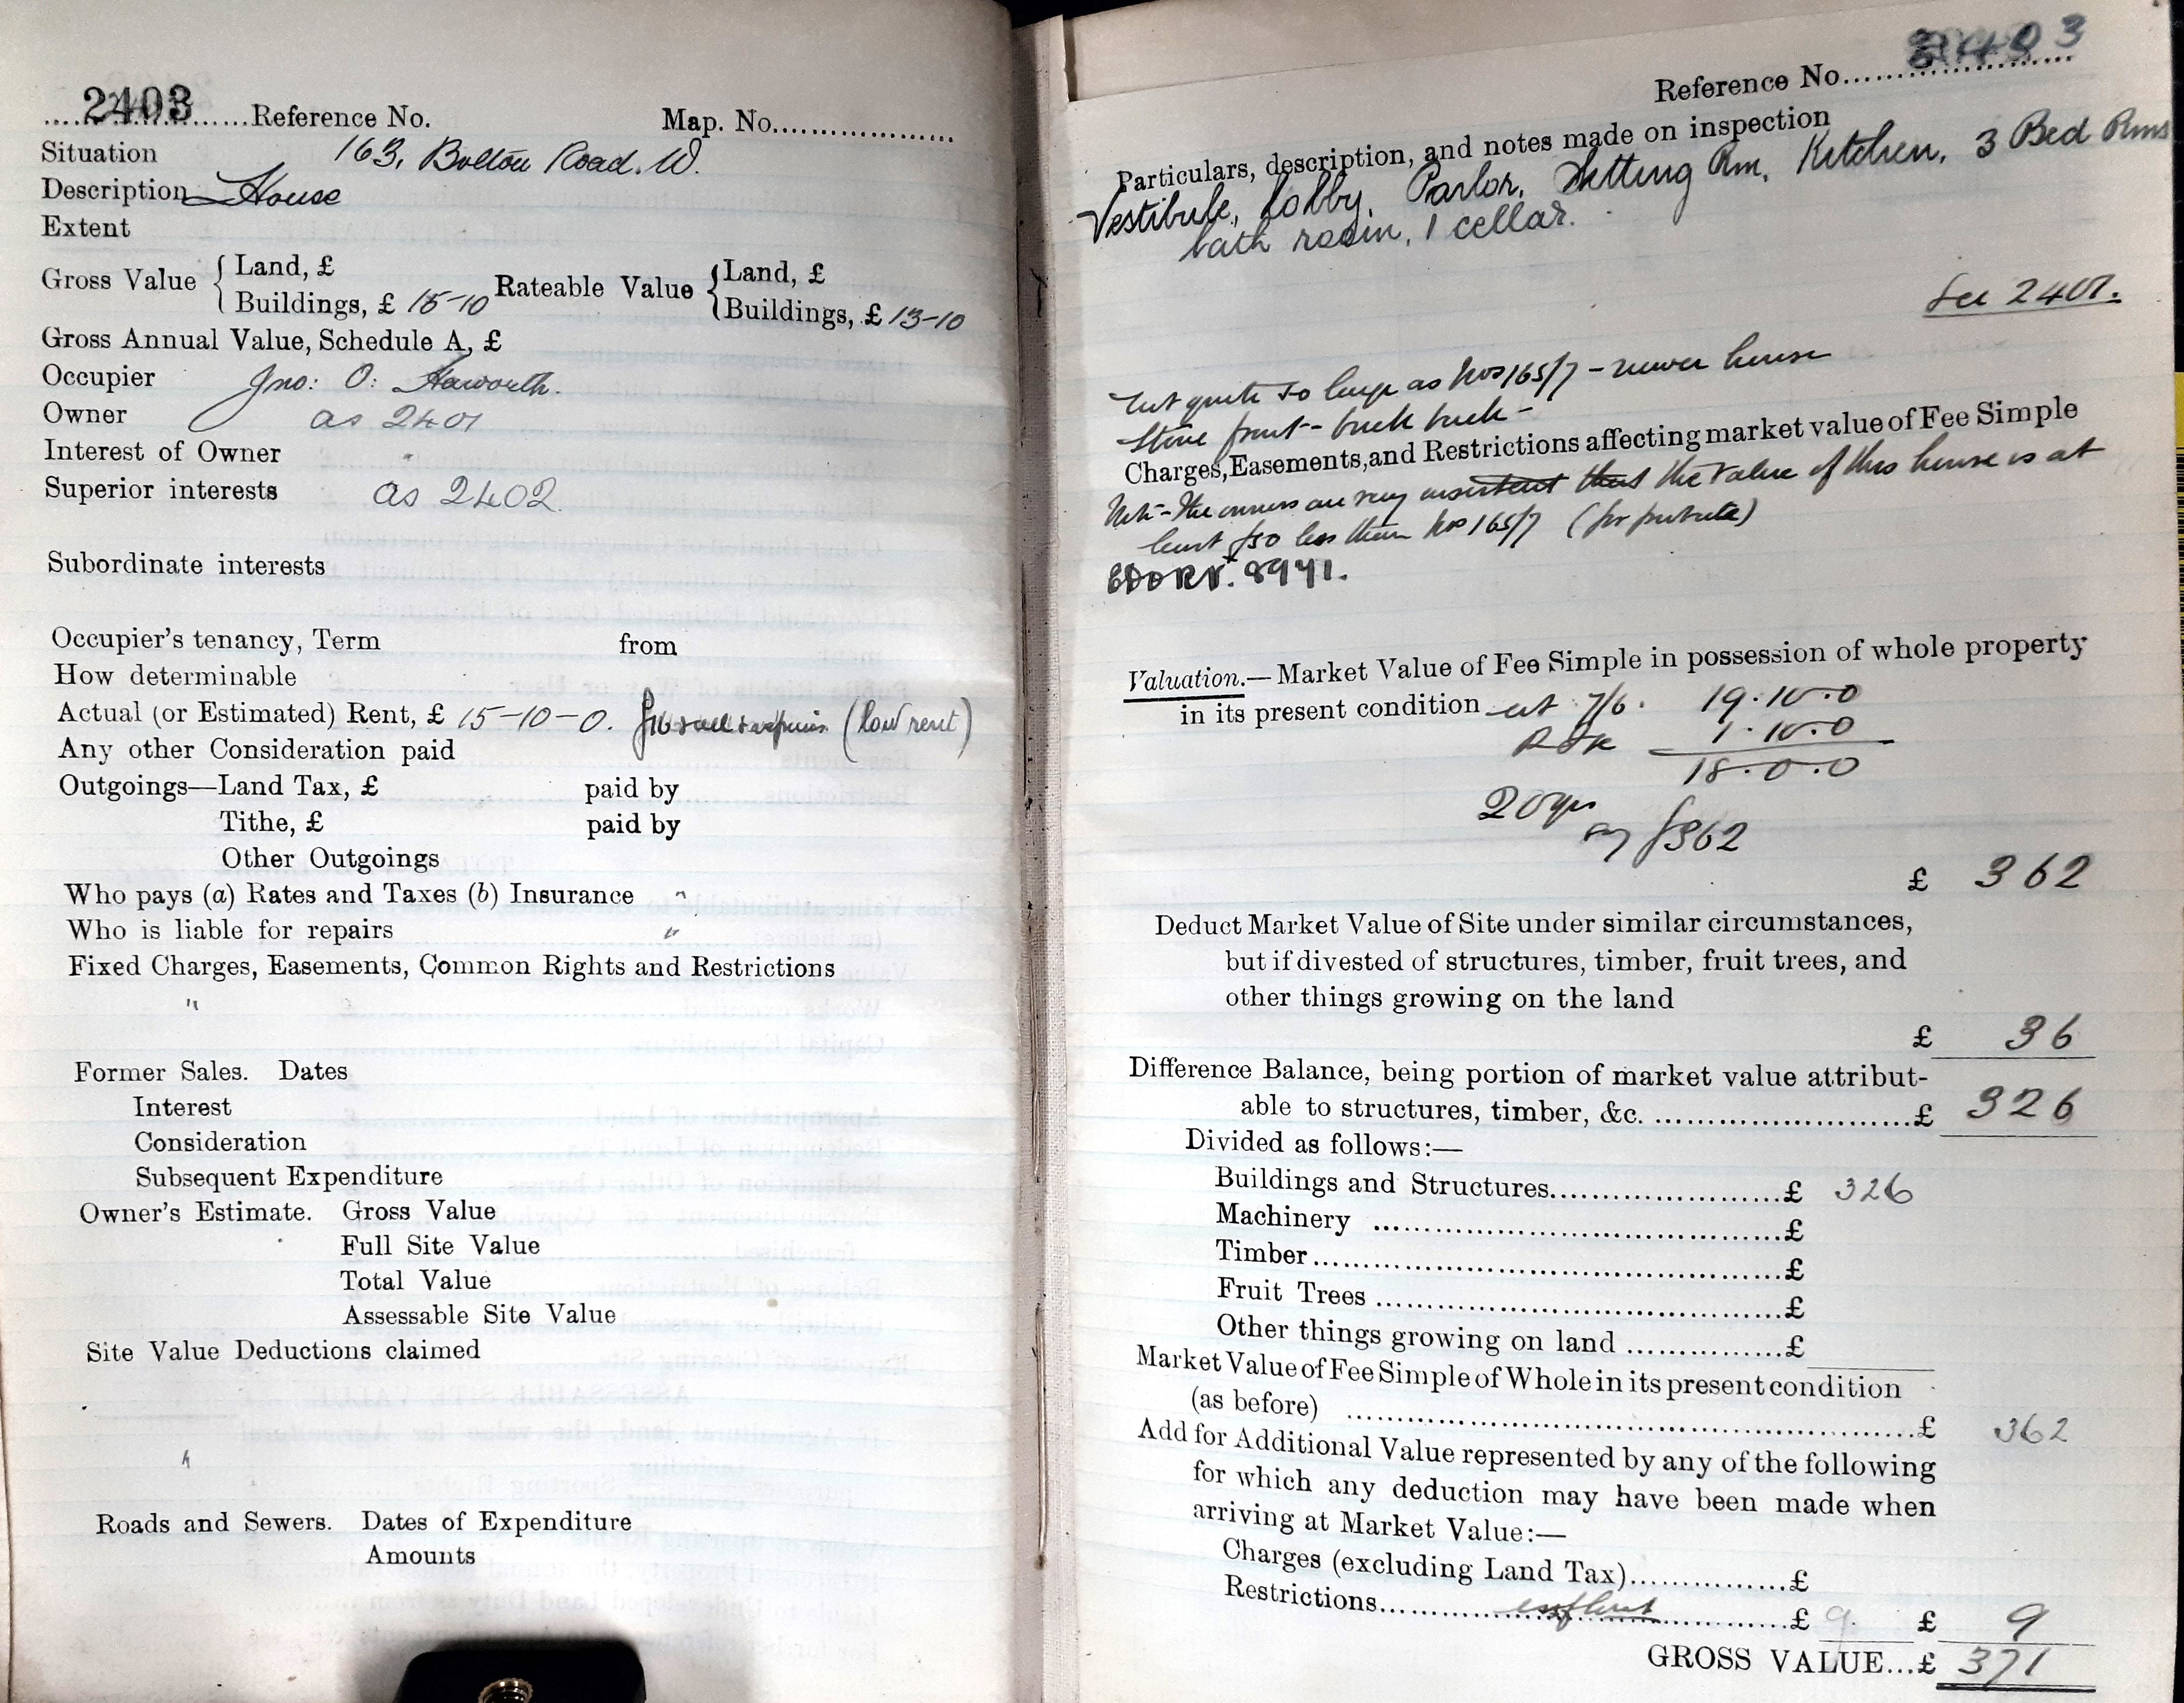 2403 Reference No. Map. No.
Situation 163, Bolton Road. W.
Description House
Extent
Gross Value { Land, £ Rateable Value { Land, £
Buildings, £ 15-10 Buildings, £ 13-10
Gross Annual Value, Schedule A, £
Occupier Jno: O: Haworth.
Owner as 2401
Interest of Owner "
Superior interests as 2402.
Subordinate interests
Occupier's tenancy, Term from
How determinable
Actual (or Estimated) Rent, £ 15-10-0. (low rent)
Any other Consideration paid
Outgoings—Land Tax, £ paid by
Tithe, £ paid by
Other Outgoings
Who pays (a) Rates and Taxes (b) Insurance "
Who is liable for repairs "
Fixed Charges, Easements, Common Rights and Restrictions
"
Former Sales. Dates
Interest
Consideration
Subsequent Expenditure
Owner's Estimate. Gross Value
Full Site Value
Total Value
Assessable Site Value
Site Value Deductions claimed
"
Roads and Sewers. Dates of Expenditure
Amounts
Reference No. 2403
Particulars, description, and notes made on inspection
Vestibule, Lobby, Parlor, Sitting Rm, Kitchen, 3 Bed Rms
bath room, 1 cellar.
See 2401.
Not quite so large as Nos 165/7 - newer house
Stone front - brick back -
Charges, Easements, and Restrictions affecting market value of Fee Simple
Note - The owners are very insistent that the value of this house is at
least £50 less than Nos 165/7 (for probate)
Valuation.— Market Value of Fee Simple in possession of whole property
in its present condition at 7/6. 19.10.0
1.10.0
18.0.0
20 yrs
say £362
£ 362
Deduct Market Value of Site under similar circumstances,
but if divested of structures, timber, fruit trees, and
other things growing on the land
£ 36
Difference Balance, being portion of market value attribut-
able to structures, timber, &c. £ 326
Divided as follows:—
Buildings and Structures £ 326
Machinery £
Timber £
Fruit Trees £
Other things growing on land £
Market Value of Fee Simple of Whole in its present condition
(as before) £ 362
Add for Additional Value represented by any of the following
for which any deduction may have been made when
arriving at Market Value:—
Charges (excluding Land Tax) £
Restrictions £ 9. £ 9
GROSS VALUE...£ 371